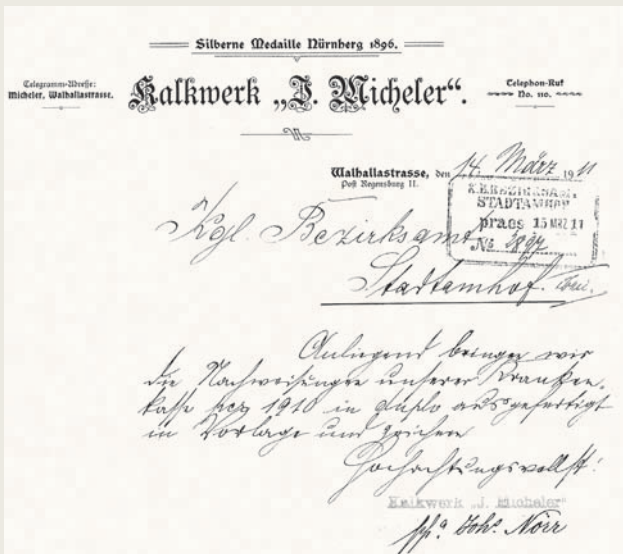 Silberne Medaille Nürnberg 1896.
Telegramm-Adresse:
Micheler, Walhallastrasse.
Kalkwerk „J. Micheler“.
Telephon-Ruf
No. 110.
Walhallastrasse, den 14. März 1911
Post Regensburg II.
K.BEZIRKSAMT
STADTAMHOF
praes 15 MRZ 11
No 2897
Kgl. Bezirksamt
Stadtamhof.
Anliegend bringen wir
die Nachweisungen unserer Kranken-
kasse per 1910 in duplo ausgefertigt
in Vorlage und zeichnen
Hochachtungsvollst!
Kalkwerk „J. Micheler“
ppa. Johs. Nörr